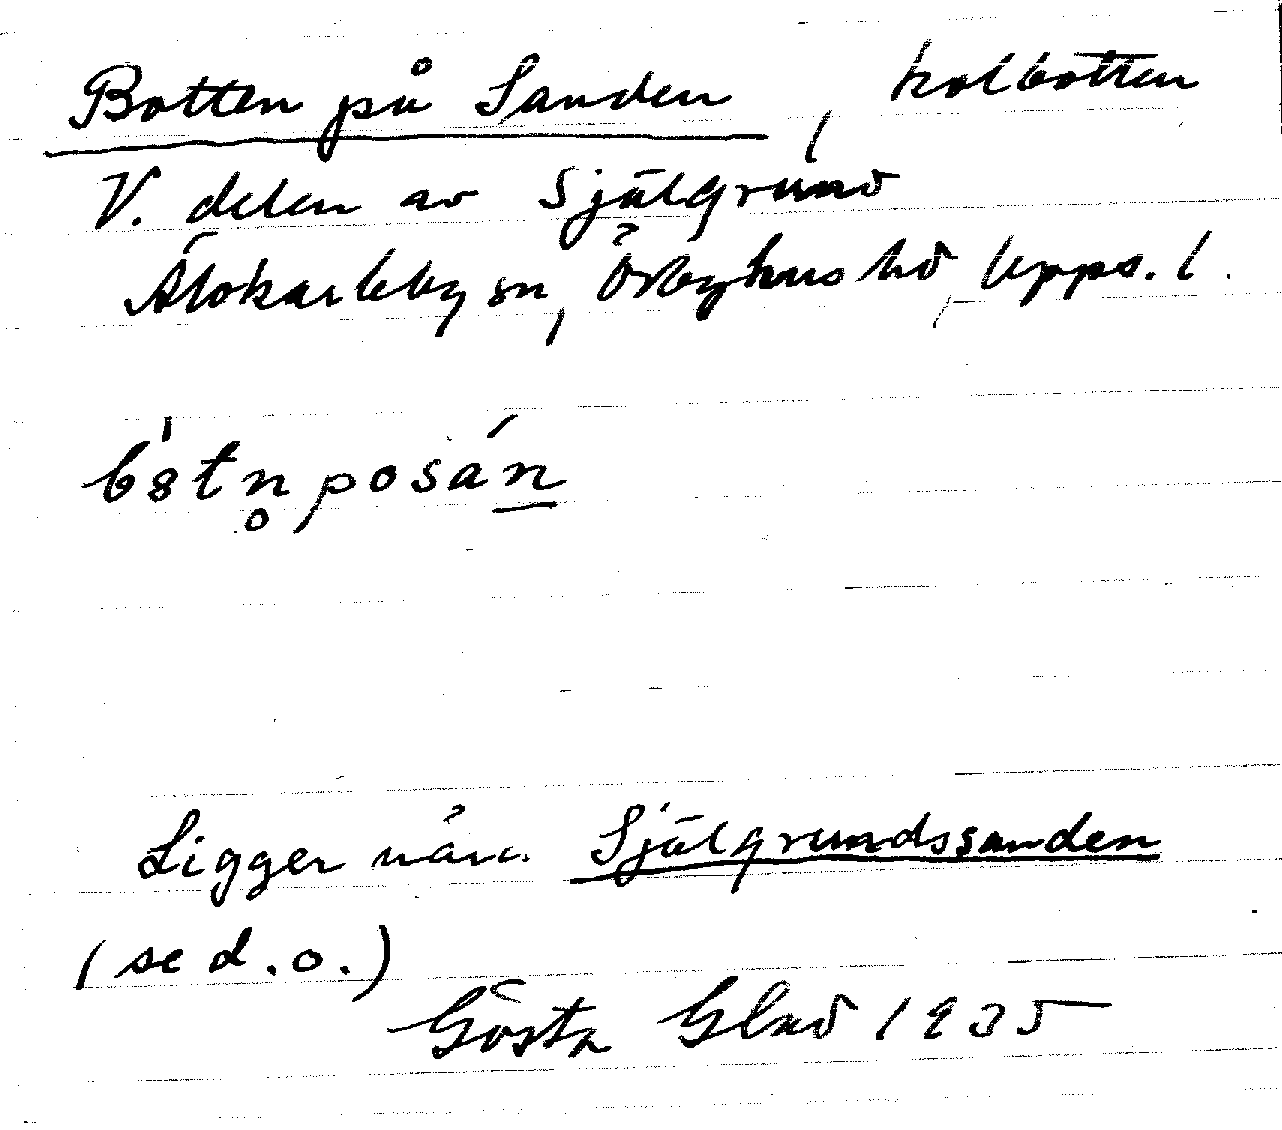 Botten på Sanden, kolbotten
V. delen av Själgrund
Älvkarleby sn, Örbyhus hd, Upps. l.
Ligger nära Själgrundssanden
(se d.o.)
Gösta Glad 1935